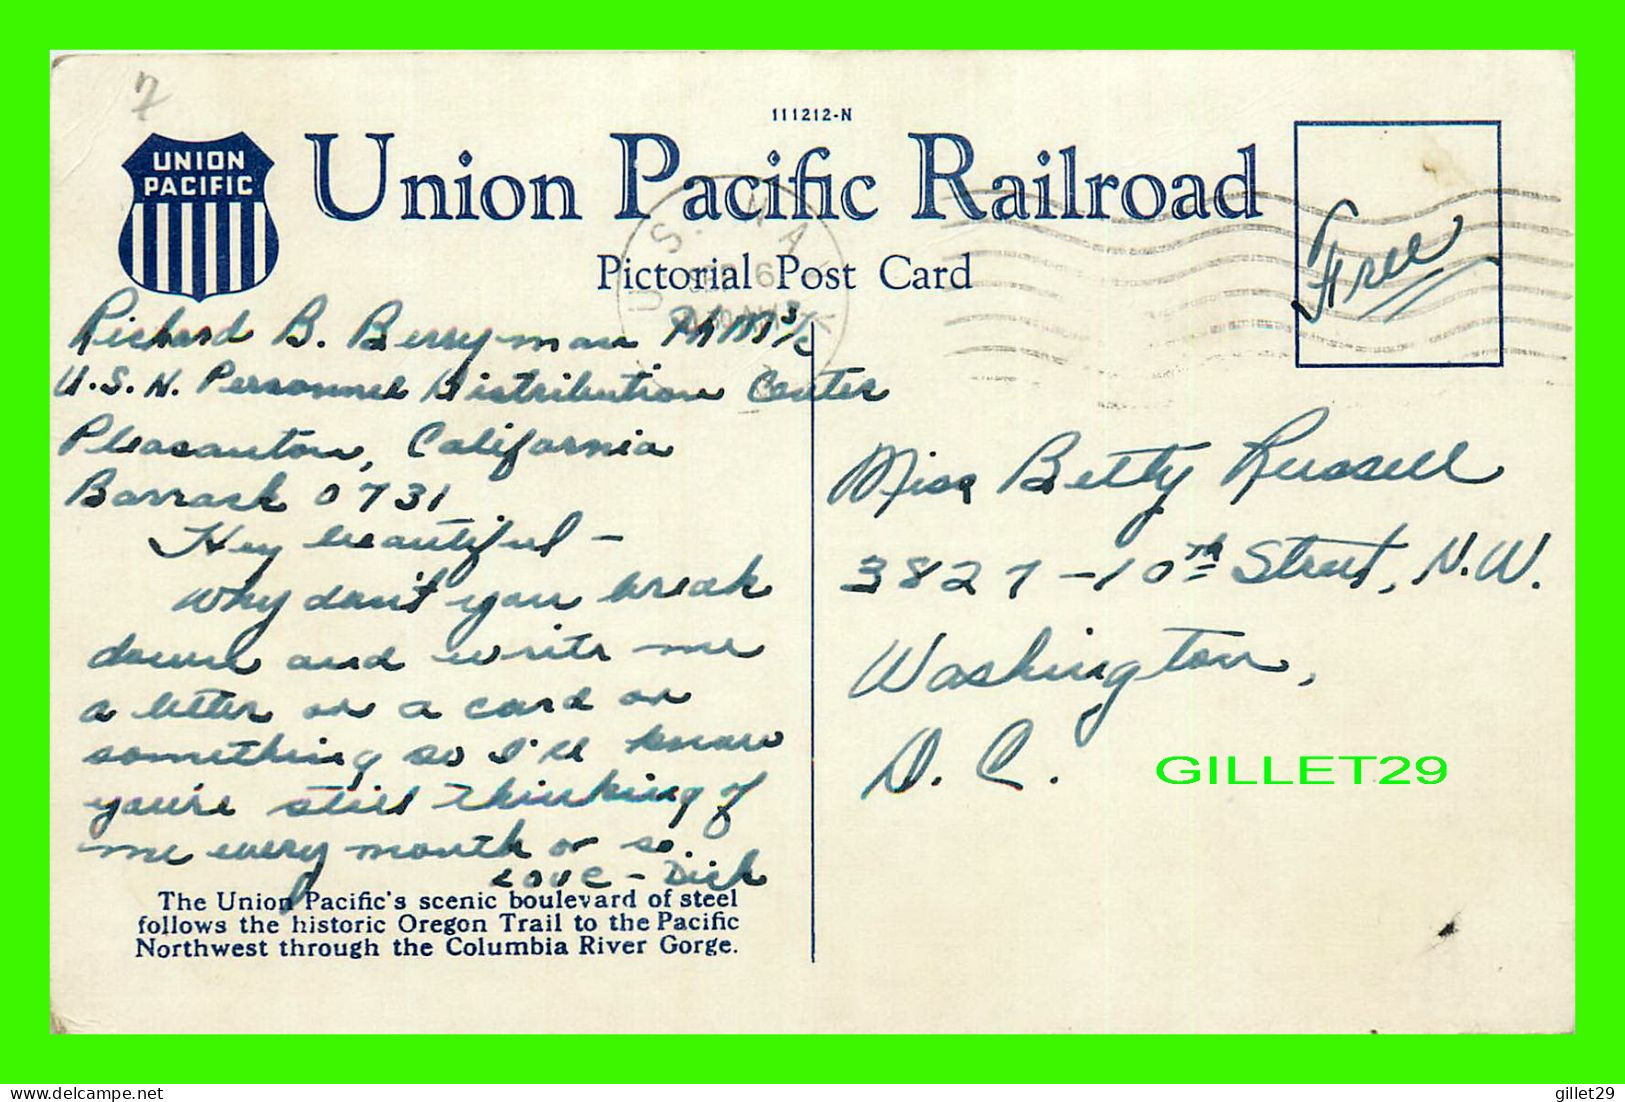 7
111212-N
UNION
PACIFIC
Union Pacific Railroad
Pictorial Post Card
U.S. NAVY
SEP 6
Free
Richard B. Berryman PhM 3/c
U.S.N. Personnel Distribution Center
Pleasanton, California
Barrack 0731
Hey beautiful –
Why don't you break
down and write me
a letter or a card or
something so I'll know
you're still thinking of
me every month or so.
Love – Dick
The Union Pacific's scenic boulevard of steel
follows the historic Oregon Trail to the Pacific
Northwest through the Columbia River Gorge.
Miss Betty Russell
3827 – 10th Street, N.W.
Washington,
D. C.
GILLET29
delcampe.net
gillet29